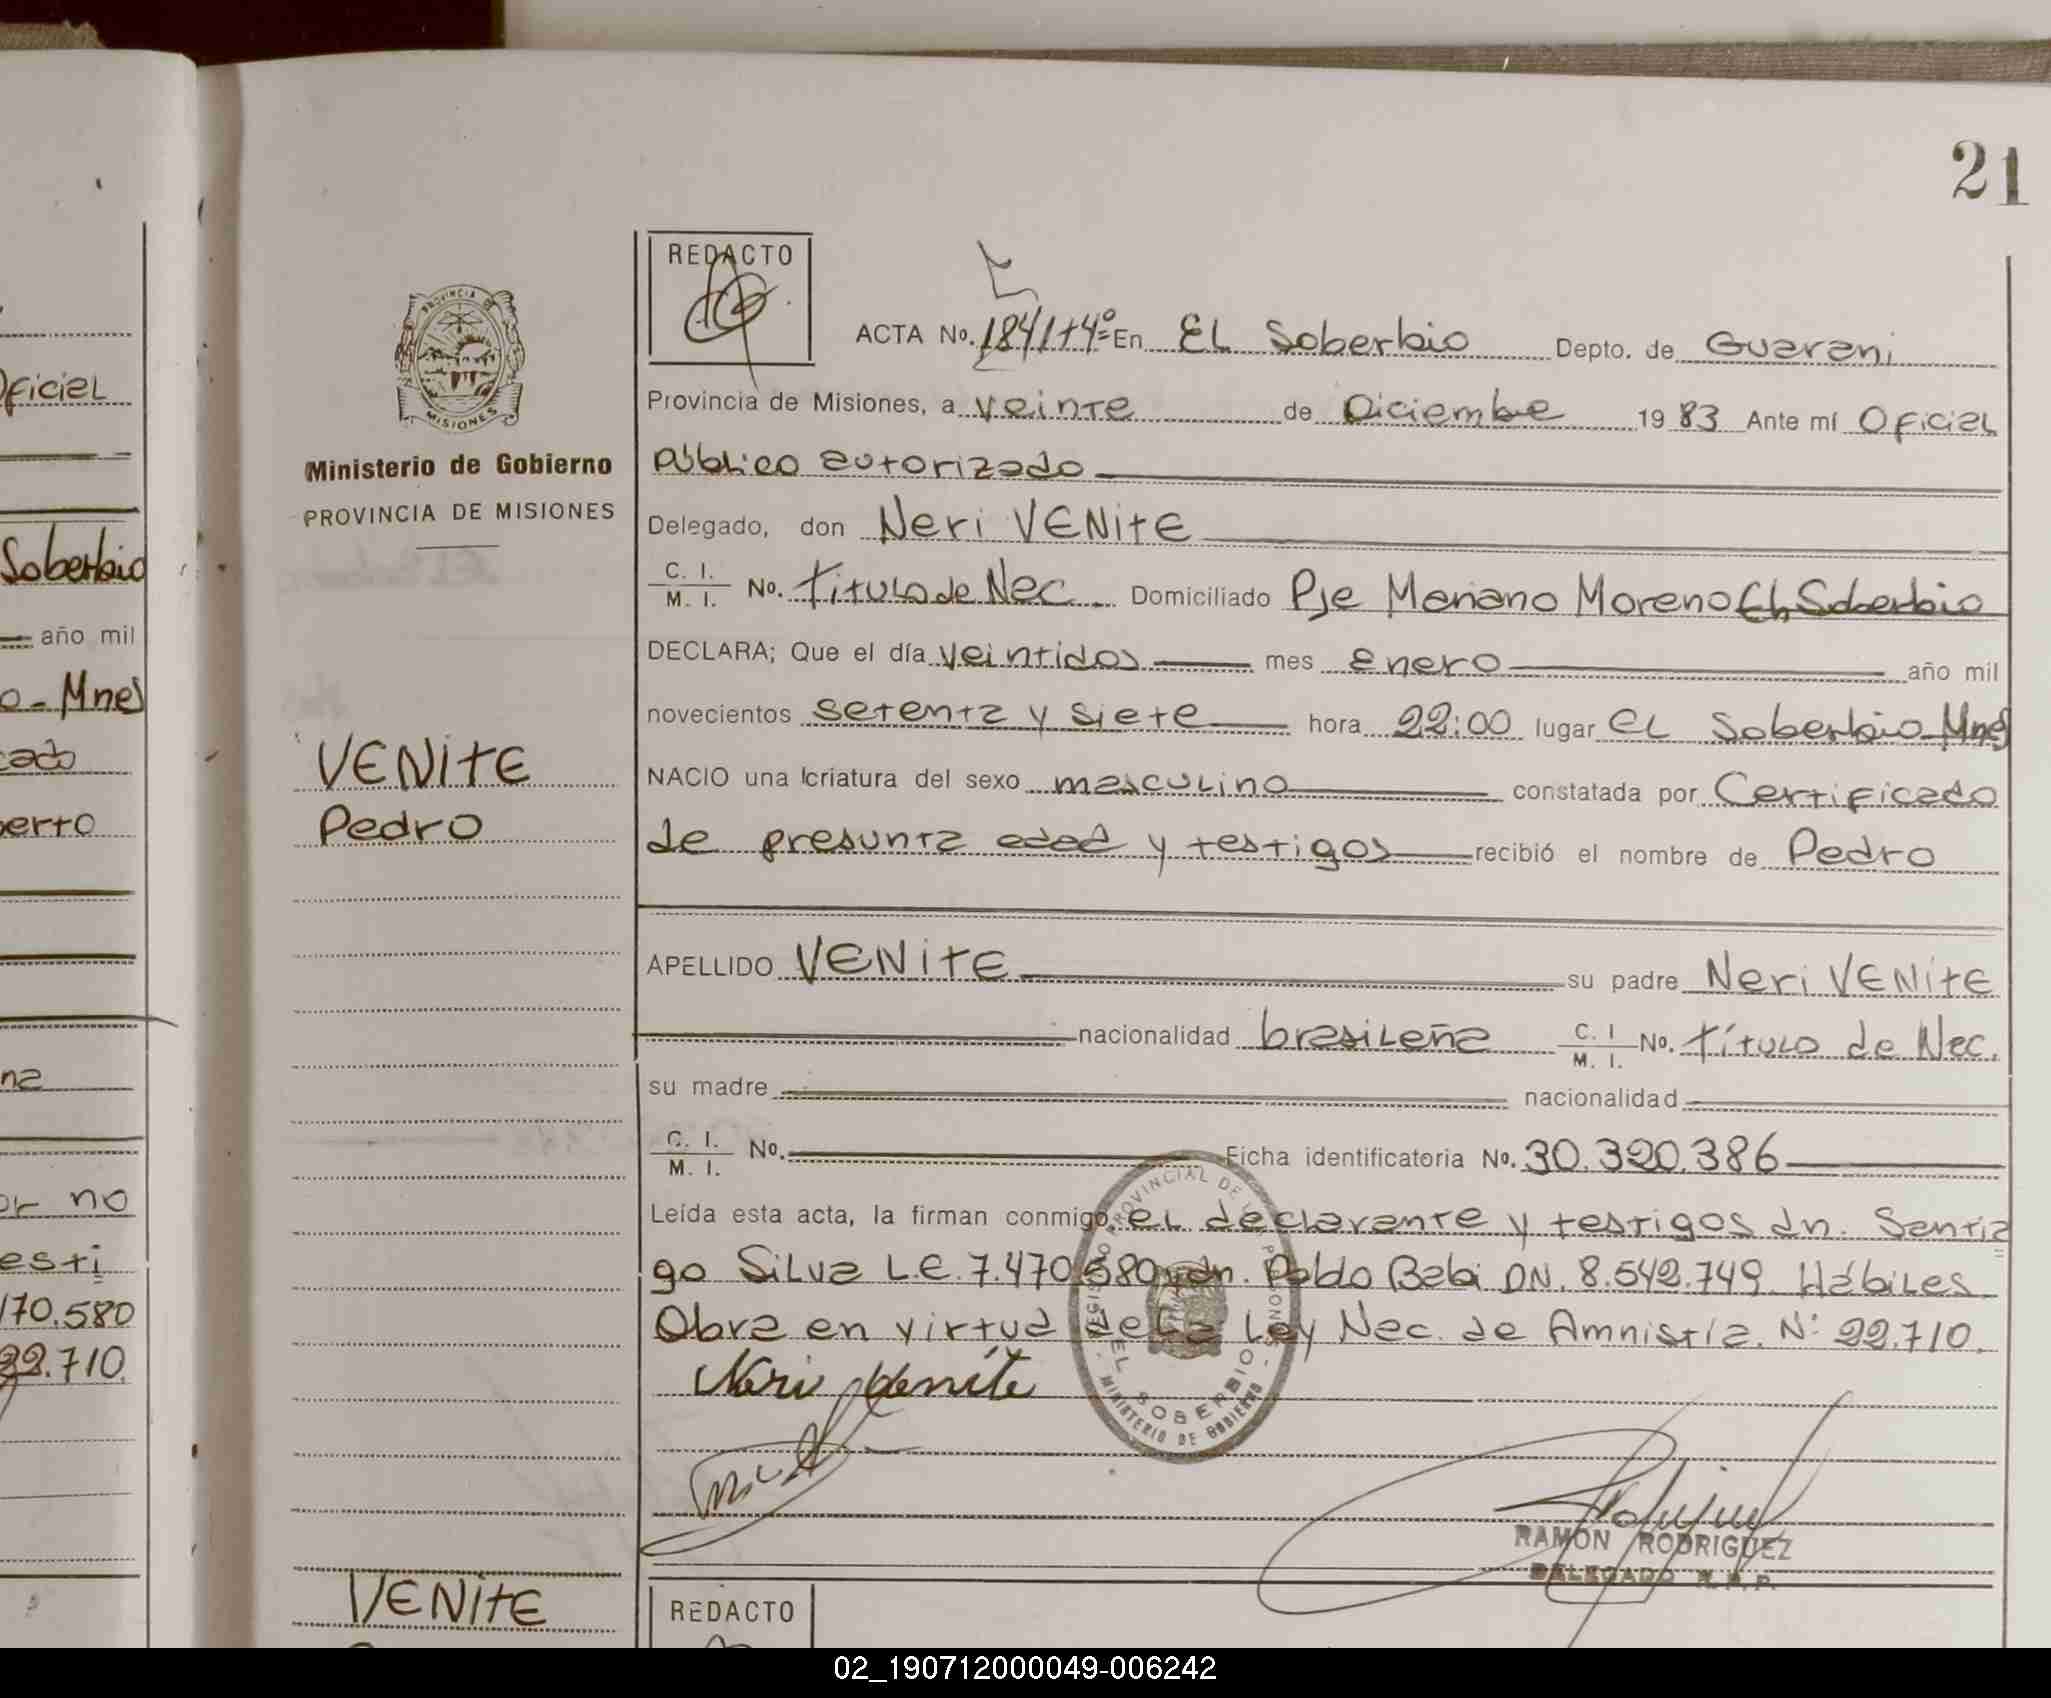 21
REDACTO
ACTA No. 1841t4º En EL Soberbio Depto. de Guarani
Provincia de Misiones, a veinte de Diciembre 1983 Ante mí Oficial
público autorizado
Ministerio de Gobierno
PROVINCIA DE MISIONES
Delegado, don Neri VENITE
C. I. / M. I. No. título de Nac. Domiciliado Pje Mariano Moreno EL Soberbio
DECLARA; Que el día veintidos mes enero año mil
novecientos setenta y siete hora 22:00 lugar EL Soberbio Mnes
VENITE
Pedro
NACIO una criatura del sexo masculino constatada por Certificado
de presunta edad y testigos recibió el nombre de Pedro
APELLIDO VENITE su padre Neri VENITE
nacionalidad brasileña C. I / M. I. No. título de Nac.
su madre nacionalidad
C. I. / M. I. No. Ficha identificatoria No. 30.320.386
Leída esta acta, la firman conmigo, el declarante y testigos dn. Santia
go Silva L.E. 7.470.580 y dn. Pablo Babi DN. 8.542.749. Hábiles
Obra en virtud de la Ley Nac. de Amnistía. N: 22.710.
Neri Venite
REGISTRO PROVINCIAL DE LAS PERSONAS
EL SOBERBIO
MINISTERIO DE GOBIERNO
RAMON RODRIGUEZ
DELEGADO R.P.P.
VENITE
REDACTO
PROVINCIA DE
MISIONES
oficial
Soberbio
año mil
o - Mnes
cado
berto
na
or no
esti
170.580
22.710.
02_190712000049-006242